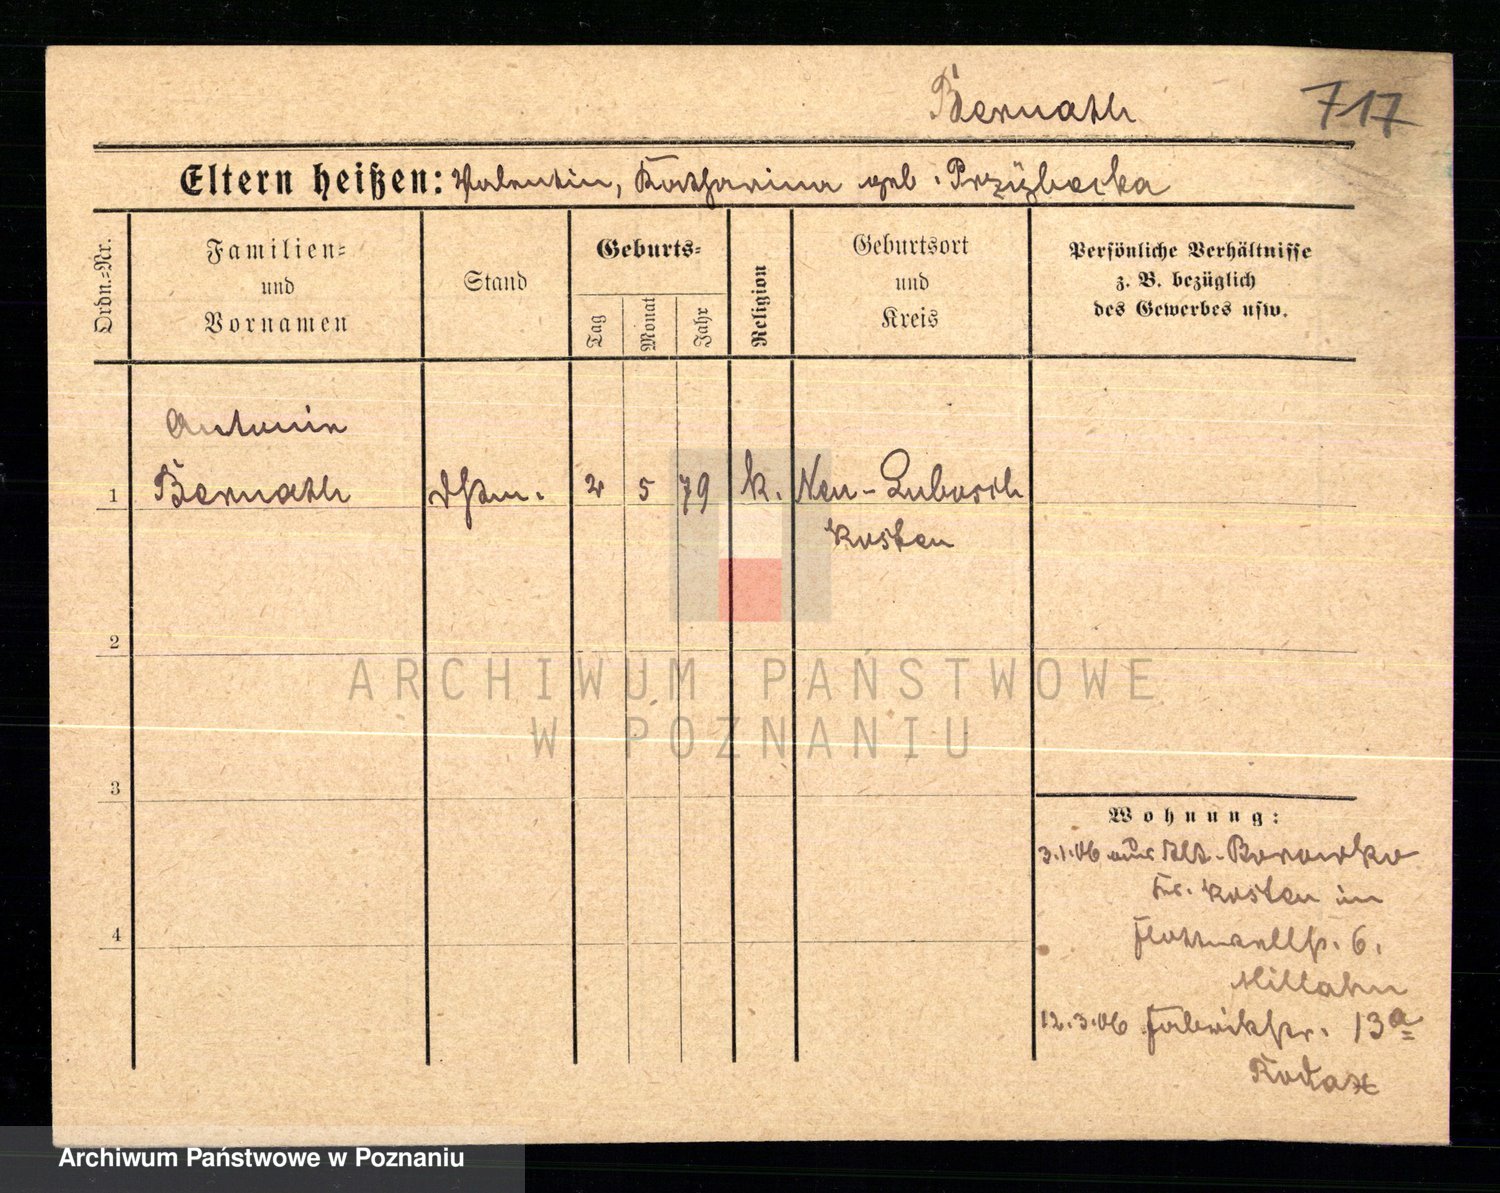 Bernath
717
Eltern heißen: Valentin, Katharina geb. Przybecka
Ordn.=Nr.
Familien=
und
Vornamen
Stand
Geburts=
Tag
Monat
Jahr
Religion
Geburtsort
und
Kreis
Persönliche Verhältnisse
z. B. bezüglich
des Gewerbes usw.
Antonie
1 Bernath 2 5 79 k. Neu-Lubosch
Kosten
2
3
4
ARCHIWUM PAŃSTWOWE
W POZNANIU
Wohnung:
3.1.06 aus Alt-Borowko
Kr. Kosten in
Flottwellstr. 6.
12.3.06 Fabrikstr. 13a
Archiwum Państwowe w Poznaniu